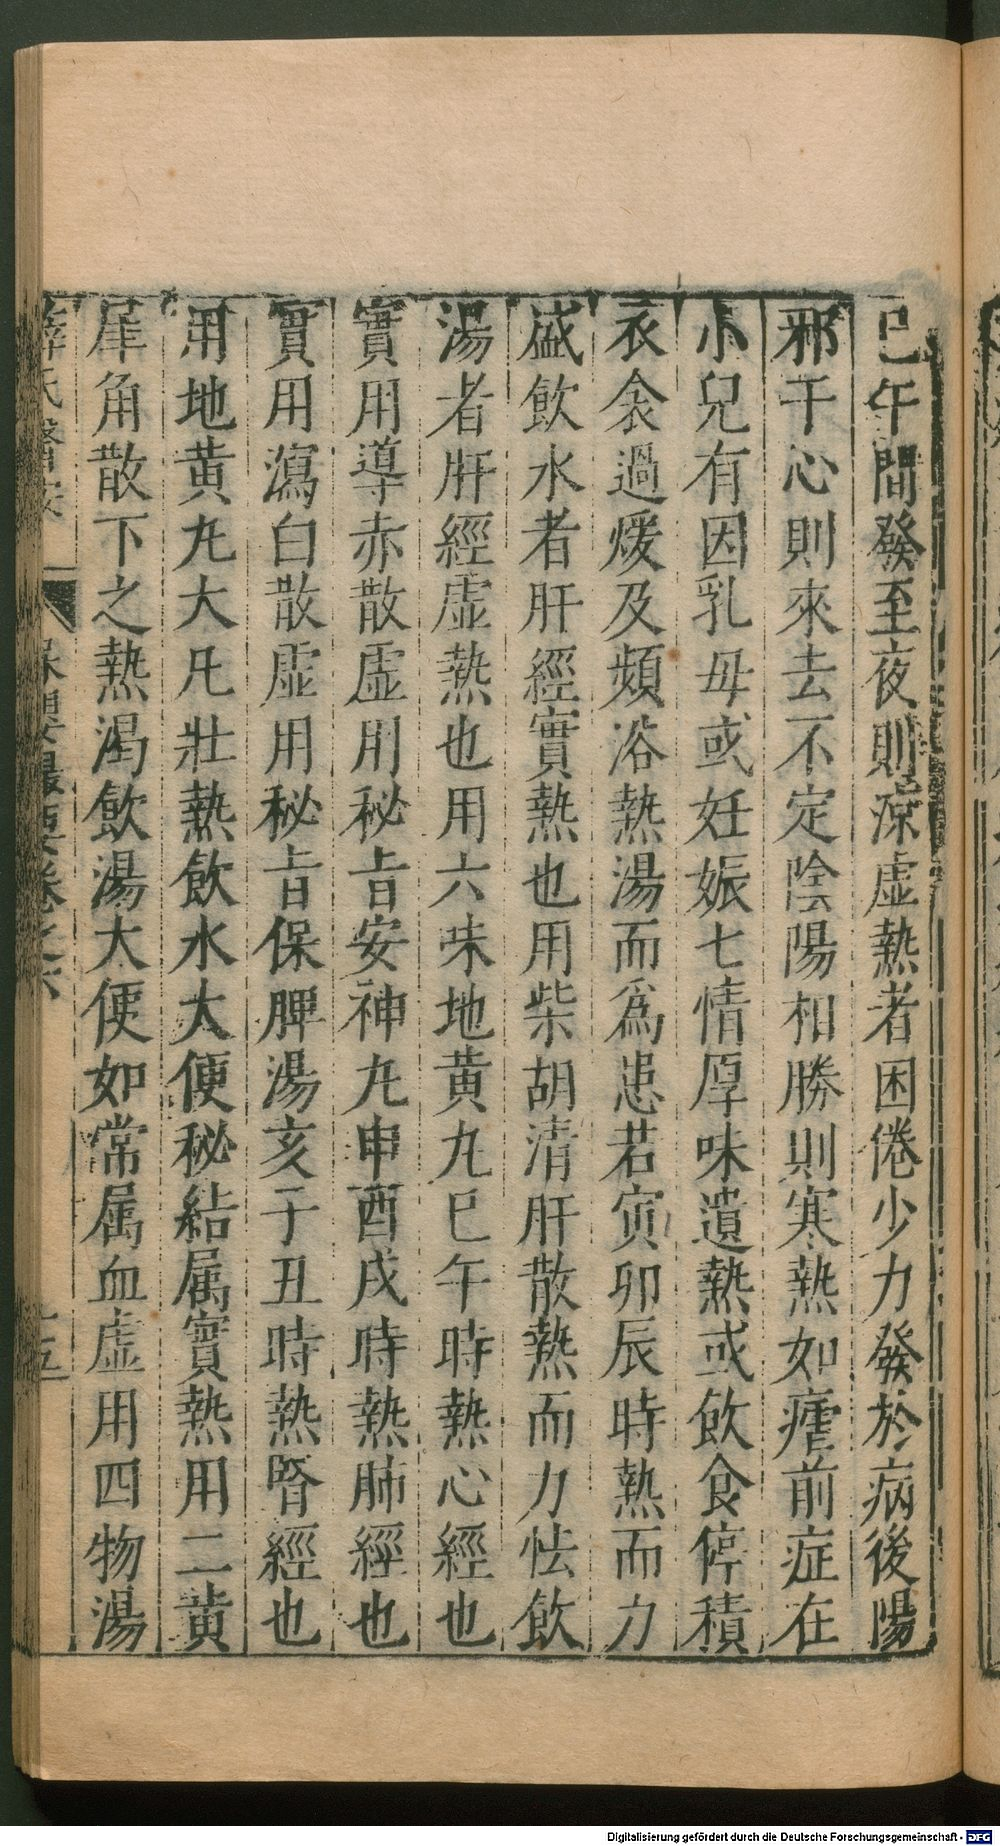 巳午間發至夜則涼虛熱者困倦少力發於病後陽
邪干心則來去不定陰陽相勝則寒熱如瘧前症在
小兒有因乳母或妊娠七情厚味遺熱或飲食停積
衣衾過煖及頻浴熱湯而爲患若寅卯辰時熱而力
盛飲水者肝經實熱也用柴胡清肝散熱而力怯飲
湯者肝經虛熱也用六味地黃丸巳午時熱心經也
實用導赤散虛用秘旨安神丸申酉戌時熱肺經也
實用瀉白散虛用秘旨保脾湯亥子丑時熱腎經也
用地黃丸大凡壯熱飲水大便秘結属實熱用二黃
犀角散下之熱渴飲湯大便如常属血虛用四物湯
薛氏醫案 保嬰撮要卷之六 十五
Digitalisierung gefördert durch die Deutsche Forschungsgemeinschaft - DFG